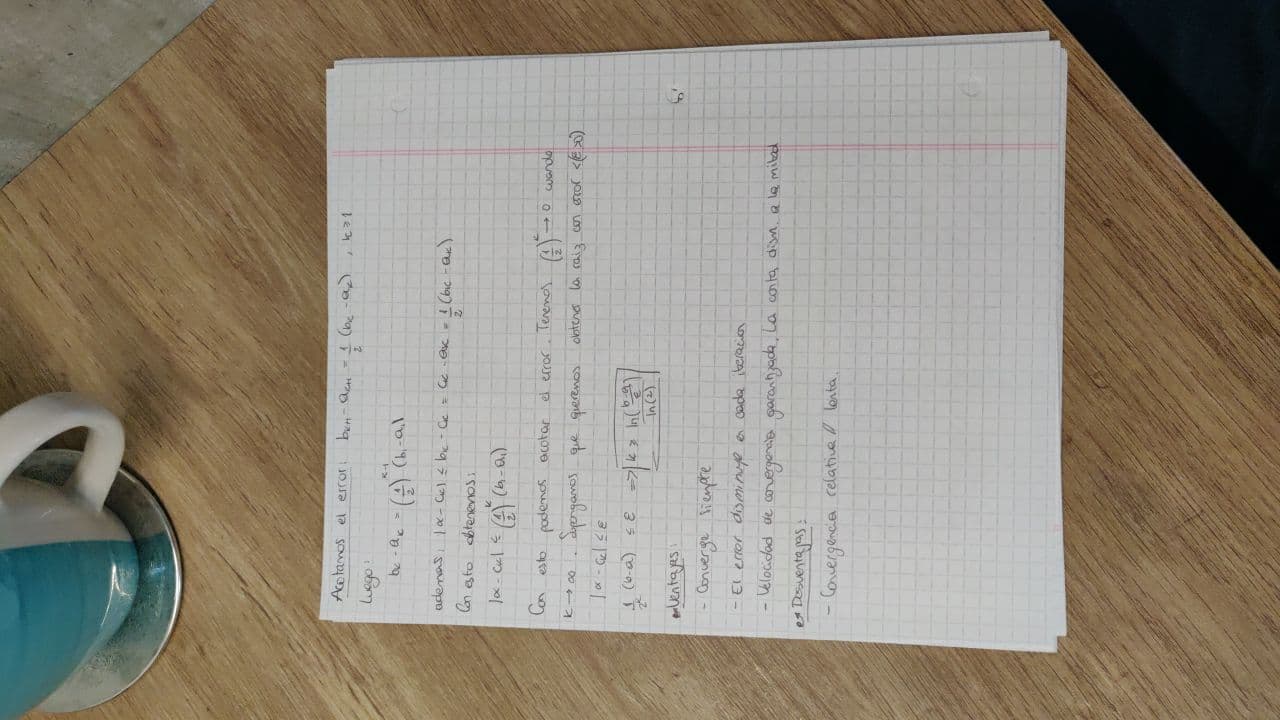 Acotamos el error: bₖ₊₁ - aₖ₊₁ = 1/2 (bₖ - aₖ) , k ≥ 1
Luego:
bₖ - aₖ = (1/2)^(k-1) (b₁ - a₁)
ademas: |α - cₖ| ≤ bₖ - cₖ = cₖ - aₖ = 1/2 (bₖ - aₖ)
Con esto obtenemos:
|α - cₖ| ≤ (1/2)^k (b₁ - a₁)
Con esto podemos acotar el error. Tenemos (1/2)^k → 0 cuando
k → ∞. Supongamos que queremos obtener la raiz con error < (ε>0)
|α - cₖ| ≤ ε
1/2^k (b-a) ≤ ε ⇒ k ≥ ln((b-a)/ε) / ln(2)
Ventajas:
- Converge siempre
- El error disminuye en cada iteracion
- Velocidad de convergencia garantizada. La cota dism. a la mitad
Desventajas:
- Convergencia relativa// lenta.